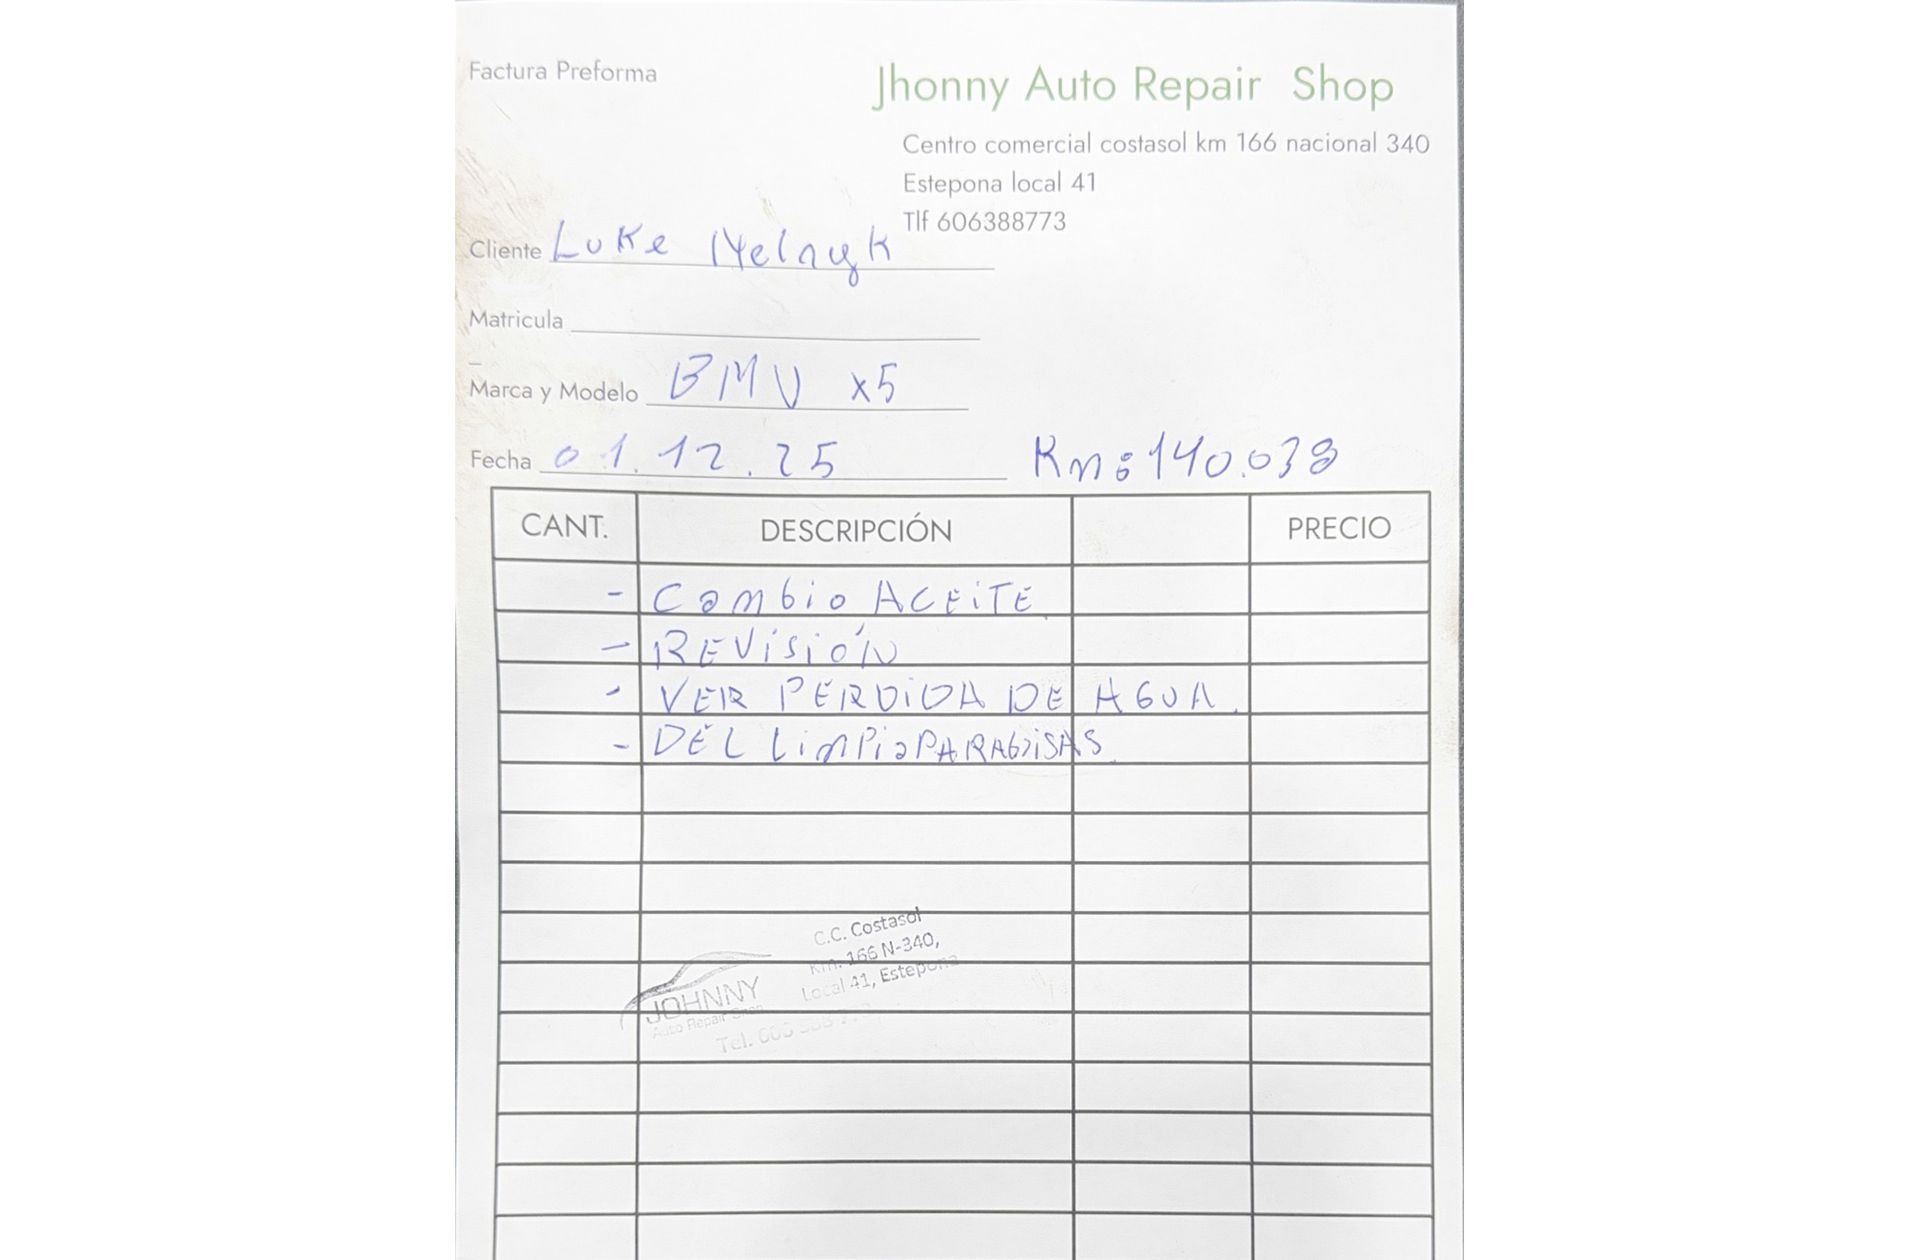 Factura Preforma
Jhonny Auto Repair Shop
Centro comercial costasol km 166 nacional 340
Estepona local 41
Tlf 606388773
Cliente Luke Melnyk
Matricula
Marca y Modelo BMV X5
Fecha 01.12.25 Km: 140.038
CANT. DESCRIPCIÓN PRECIO
- Cambio ACEITE
- REVISIÓN
- VER PERDIDA DE AGUA.
- DEL LimPiaPARAbrisAS
C.C. Costasol
Km. 166 N-340,
Local 41, Estepona
JOHNNY
Auto Repair Shop
Tel. 606